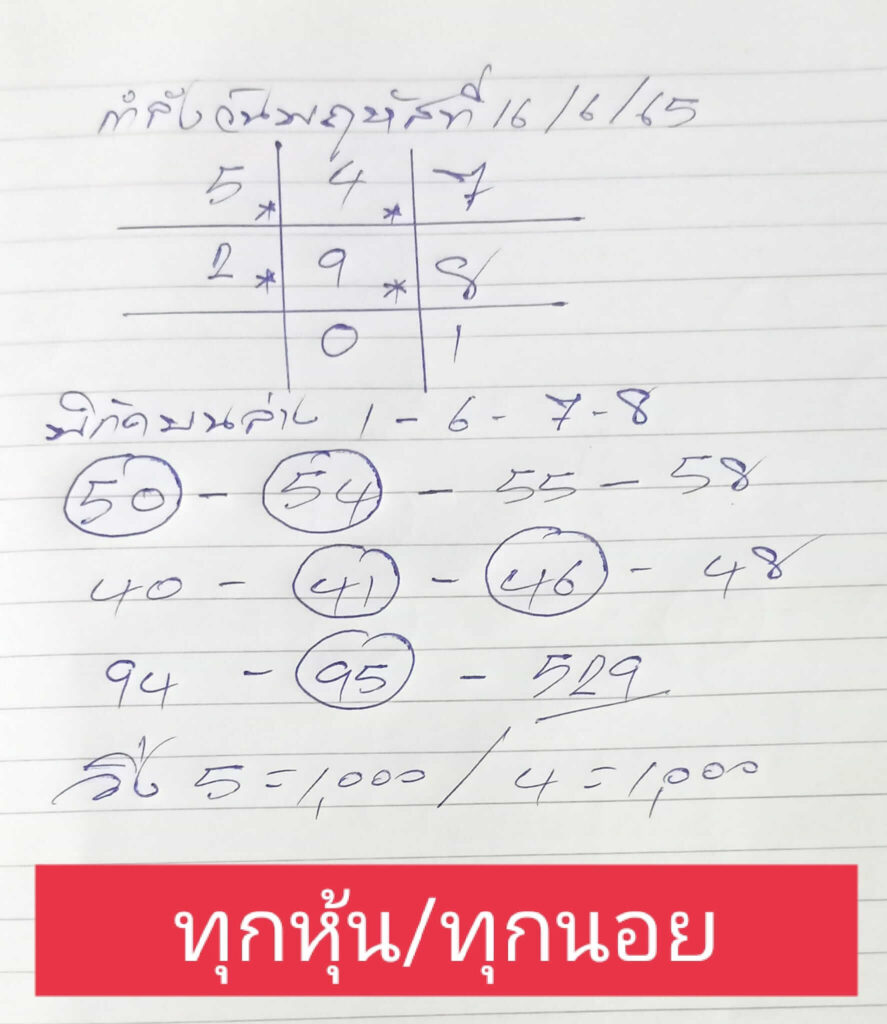 กำลังวันพฤหัสที่ 16/6/65
5 * 4 * 7
2 * 9 * 8
0 1
พิกัดบนล่าง 1 - 6 - 7 - 8
50 - 54 - 55 - 58
40 - 41 - 46 - 48
94 - 95 - 529
วิ่ง 5 = 1,000 / 4 = 1,000
ทุกหุ้น/ทุกนอย